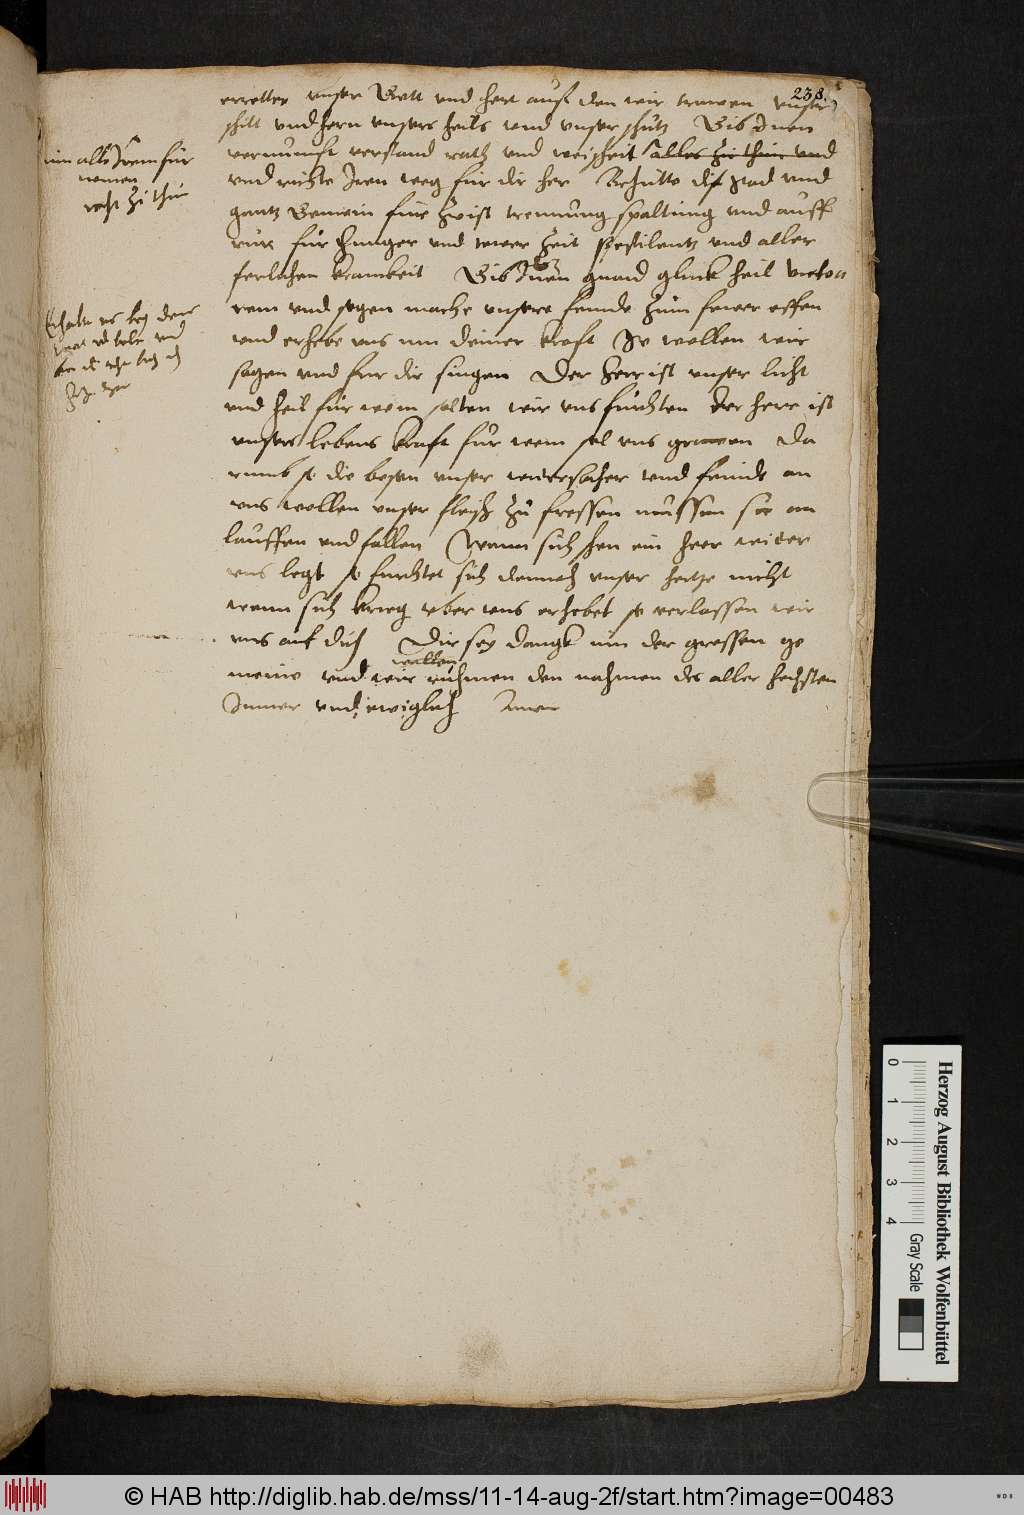 238.
erretter unser Gott und hort auf den wir trawen unser
schilt und horn unsers heils und unser schutz Gib Inen
vernunfft verstand rath und weisheit alles zu thun und
und richte Iren weg für dir her Behütte dis stad und
gantz Gemein für zwist trennung spaltung und auff
rur für hunger und tewer zeit pestilentz und aller
ferlichen kranckeit Gib Inen gnand gluck heil victo
rem und segen mache unsere feinde zum fewer offen
und erhebe uns inn deiner krafft So wollen wir
sagen und fur dir singen Der Herr ist unser licht
und heil für wem solten wir uns fürchten der herr ist
unsers lebens krafft für wem sol uns grawen Da
rumb so die bosen unser widersacher und feinde an
uns wollen unser fleisch zu fressen müssen sie an
lauffen und fallen Wenn sich schon ein heer wider
uns legt so furchtet sich dennoch unser hertze nicht
wenn sich krieg uber uns erhebet so verlassen wir
uns auf dich Dir sey danck inn der grossen ge
meine und wir wollen rühmen den nahmen des aller hochsten
Immer und ewiglich Amen
inn alle Irem für
nemen
recht zu thun
Erhalte uns bey dem
© HAB http://diglib.hab.de/mss/11-14-aug-2f/start.htm?image=00483
Herzog August Bibliothek Wolfenbüttel
0 1 2 3 4 Gray Scale